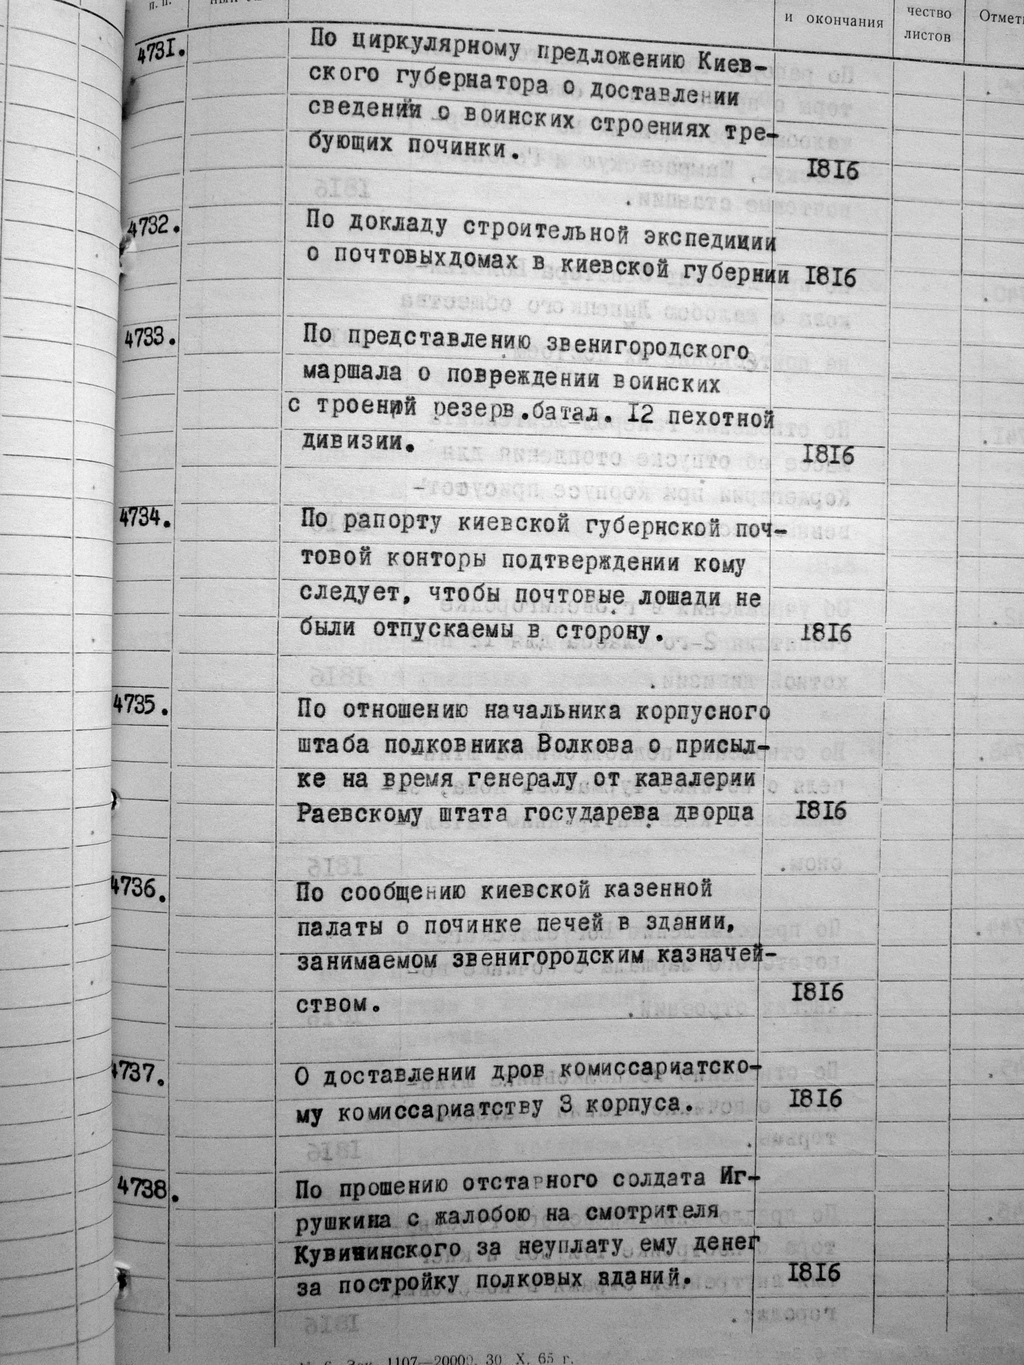 п.п.
и окончания
чество
листов
4731.
По циркулярному предложению Киев-
ского губернатора о доставлении
сведений о воинских строениях тре-
бующих починки.
1816
4732.
По докладу строительной экспедиции
о почтовыхдомах в киевской губернии 1816
4733.
По представлению звенигородского
маршала о повреждении воинских
с троений резерв.батал. 12 пехотной
дивизии.
1816
4734.
По рапорту киевской губернской поч-
товой конторы подтверждении кому
следует, чтобы почтовые лошади не
были отпускаемы в сторону.
1816
4735.
По отношению начальника корпусного
штаба полковника Волкова о присыл-
ке на время генералу от кавалерии
Раевскому штата государева дворца 1816
4736.
По сообщению киевской казенной
палаты о починке печей в здании,
занимаемом звенигородским казначей-
ством.
1816
4737.
О доставлении дров комиссариатско-
му комиссариатству 3 корпуса.
1816
4738.
По прошению отставного солдата Иг-
рушкина с жалобою на смотрителя
Кувичинского за неуплату ему денег
за постройку полковых зданий.
1816
Зак. 1107—20000. 30 X. 65 г.